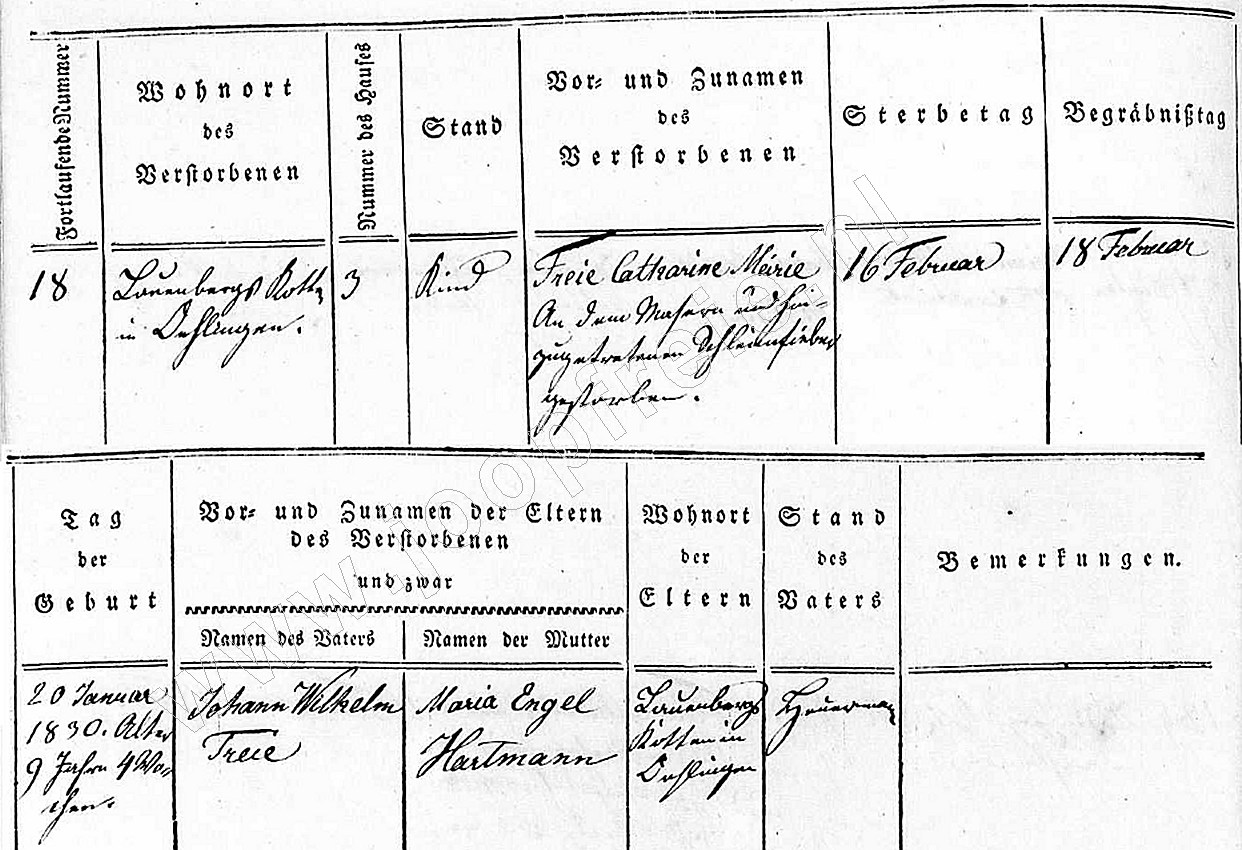 Fortlaufende Nummer
Wohnort
des
Verstorbenen
Nummer des Hauses
Stand
Vor- und Zunamen
des
Verstorbenen
Sterbetag
Begräbnißtag
18
Lauenbergs Kotten
in Oehlingen.
3
Kind
Freie Catharine Meirie
An dem Masern und hin-
zugetretenen Schleimfieber
gestorben.
16 Februar
18 Februar
Tag
der
Geburt
Vor- und Zunamen der Eltern
des Verstorbenen
und zwar
Namen des Vaters
Namen der Mutter
Wohnort
der
Eltern
Stand
des
Vaters
Bemerkungen.
20 Januar
1830. Alter
9 Jahre 4 Wo-
chen.
Johann Wilhelm
Freie
Maria Engel
Hartmann
Lauenbergs
Kotten in
Oehlingen
Heuerman
www.joopfreie.nl